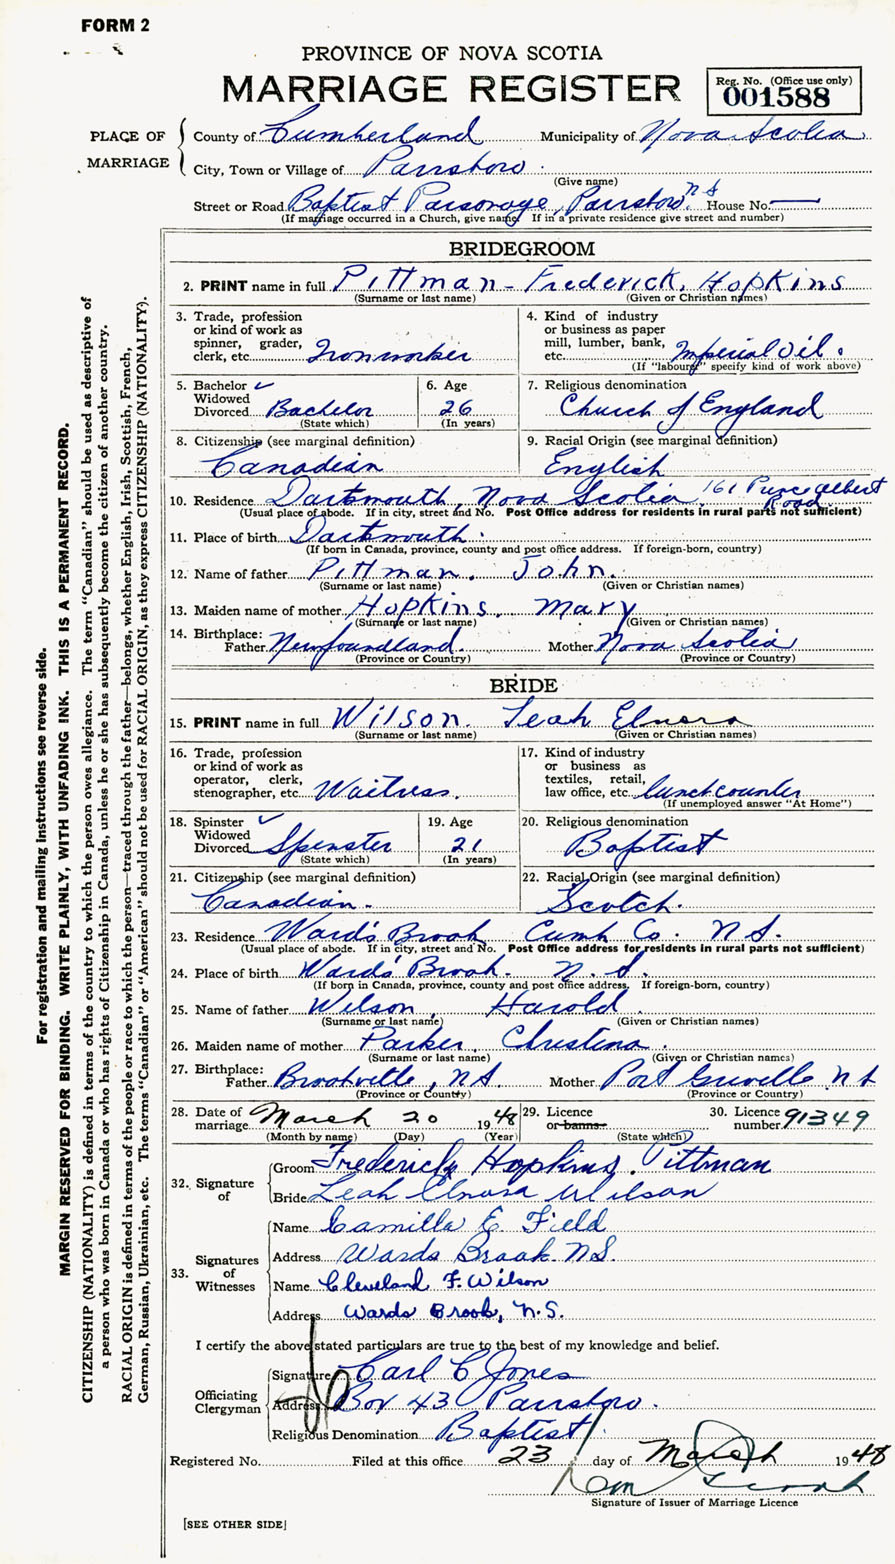 FORM 2
PROVINCE OF NOVA SCOTIA
MARRIAGE REGISTER
Reg. No. (Office use only)
001588
PLACE OF MARRIAGE
County of Cumberland Municipality of Nova Scotia
City, Town or Village of Parrsboro
(Give name)
Street or Road Baptist Parsonage, Parrsboro N S House No. —
(If marriage occurred in a Church, give name) If in a private residence give street and number)
BRIDEGROOM
2. PRINT name in full Pittman - Frederick, Hopkins
(Surname or last name) (Given or Christian names)
3. Trade, profession or kind of work as spinner, grader, clerk, etc. Ironworker
4. Kind of industry or business as paper mill, lumber, bank, etc. Imperial Oil.
(If "labourer" specify kind of work above)
5. Bachelor ✓ Widowed Divorced Bachelor
(State which)
6. Age 26
(In years)
7. Religious denomination Church of England
8. Citizenship (see marginal definition) Canadian
9. Racial Origin (see marginal definition) English
10. Residence Dartmouth, Nova Scotia 161 Prince Albert Road
(Usual place of abode. If in city, street and No. Post Office address for residents in rural parts not sufficient)
11. Place of birth Dartmouth
(If born in Canada, province, county and post office address. If foreign-born, country)
12. Name of father Pittman, John.
(Surname or last name) (Given or Christian names)
13. Maiden name of mother Hopkins, Mary
(Surname or last name) (Given or Christian names)
14. Birthplace: Father Newfoundland. Mother Nova Scotia
(Province or Country) (Province or Country)
BRIDE
15. PRINT name in full Wilson. Leah Elnora
(Surname or last name) (Given or Christian names)
16. Trade, profession or kind of work as operator, clerk, stenographer, etc. Waitress.
17. Kind of industry or business as textiles, retail, law office, etc. lunch counter
(If unemployed answer "At Home")
18. Spinster ✓ Widowed Divorced Spinster
(State which)
19. Age 21
(In years)
20. Religious denomination Baptist
21. Citizenship (see marginal definition) Canadian.
22. Racial Origin (see marginal definition) Scotch.
23. Residence Ward's Brook Cumb Co. N S.
(Usual place of abode. If in city, street and No. Post Office address for residents in rural parts not sufficient)
24. Place of birth Ward's Brook. N. S.
(If born in Canada, province, county and post office address. If foreign-born, country)
25. Name of father Wilson, Harold.
(Surname or last name) (Given or Christian names)
26. Maiden name of mother Parker, Christina.
(Surname or last name) (Given or Christian names)
27. Birthplace: Father Brookville, N S. Mother Port Greville N S
(Province or Country) (Province or Country)
28. Date of marriage March 20 1948
(Month by name) (Day) (Year)
29. Licence or banns
(State which)
30. Licence number 91349
32. Signature of
Groom Frederick Hopkins Pittman
Bride Leah Elnora Wilson
33. Signatures of Witnesses
Name Camilla E. Field
Address Wards Brook N.S.
Name Cleveland F. Wilson
Address Wards Brook, N.S.
I certify the above stated particulars are true to the best of my knowledge and belief.
Officiating Clergyman
Signature Carl C Jones
Address Box 43 Parrsboro.
Religious Denomination Baptist
Registered No. Filed at this office 23 day of March 1948
Signature of Issuer of Marriage Licence
[SEE OTHER SIDE]
For registration and mailing instructions see reverse side.
MARGIN RESERVED FOR BINDING. WRITE PLAINLY, WITH UNFADING INK. THIS IS A PERMANENT RECORD.
CITIZENSHIP (NATIONALITY) is defined in terms of the country to which the person owes allegiance. The term "Canadian" should be used as descriptive of
a person who was born in Canada or who has rights of Citizenship in Canada, unless he or she has subsequently become the citizen of another country.
RACIAL ORIGIN is defined in terms of the people or race to which the person—traced through the father—belongs, whether English, Irish, Scottish, French,
German, Russian, Ukrainian, etc. The terms "Canadian" or "American" should not be used for RACIAL ORIGIN, as they express CITIZENSHIP (NATIONALITY).